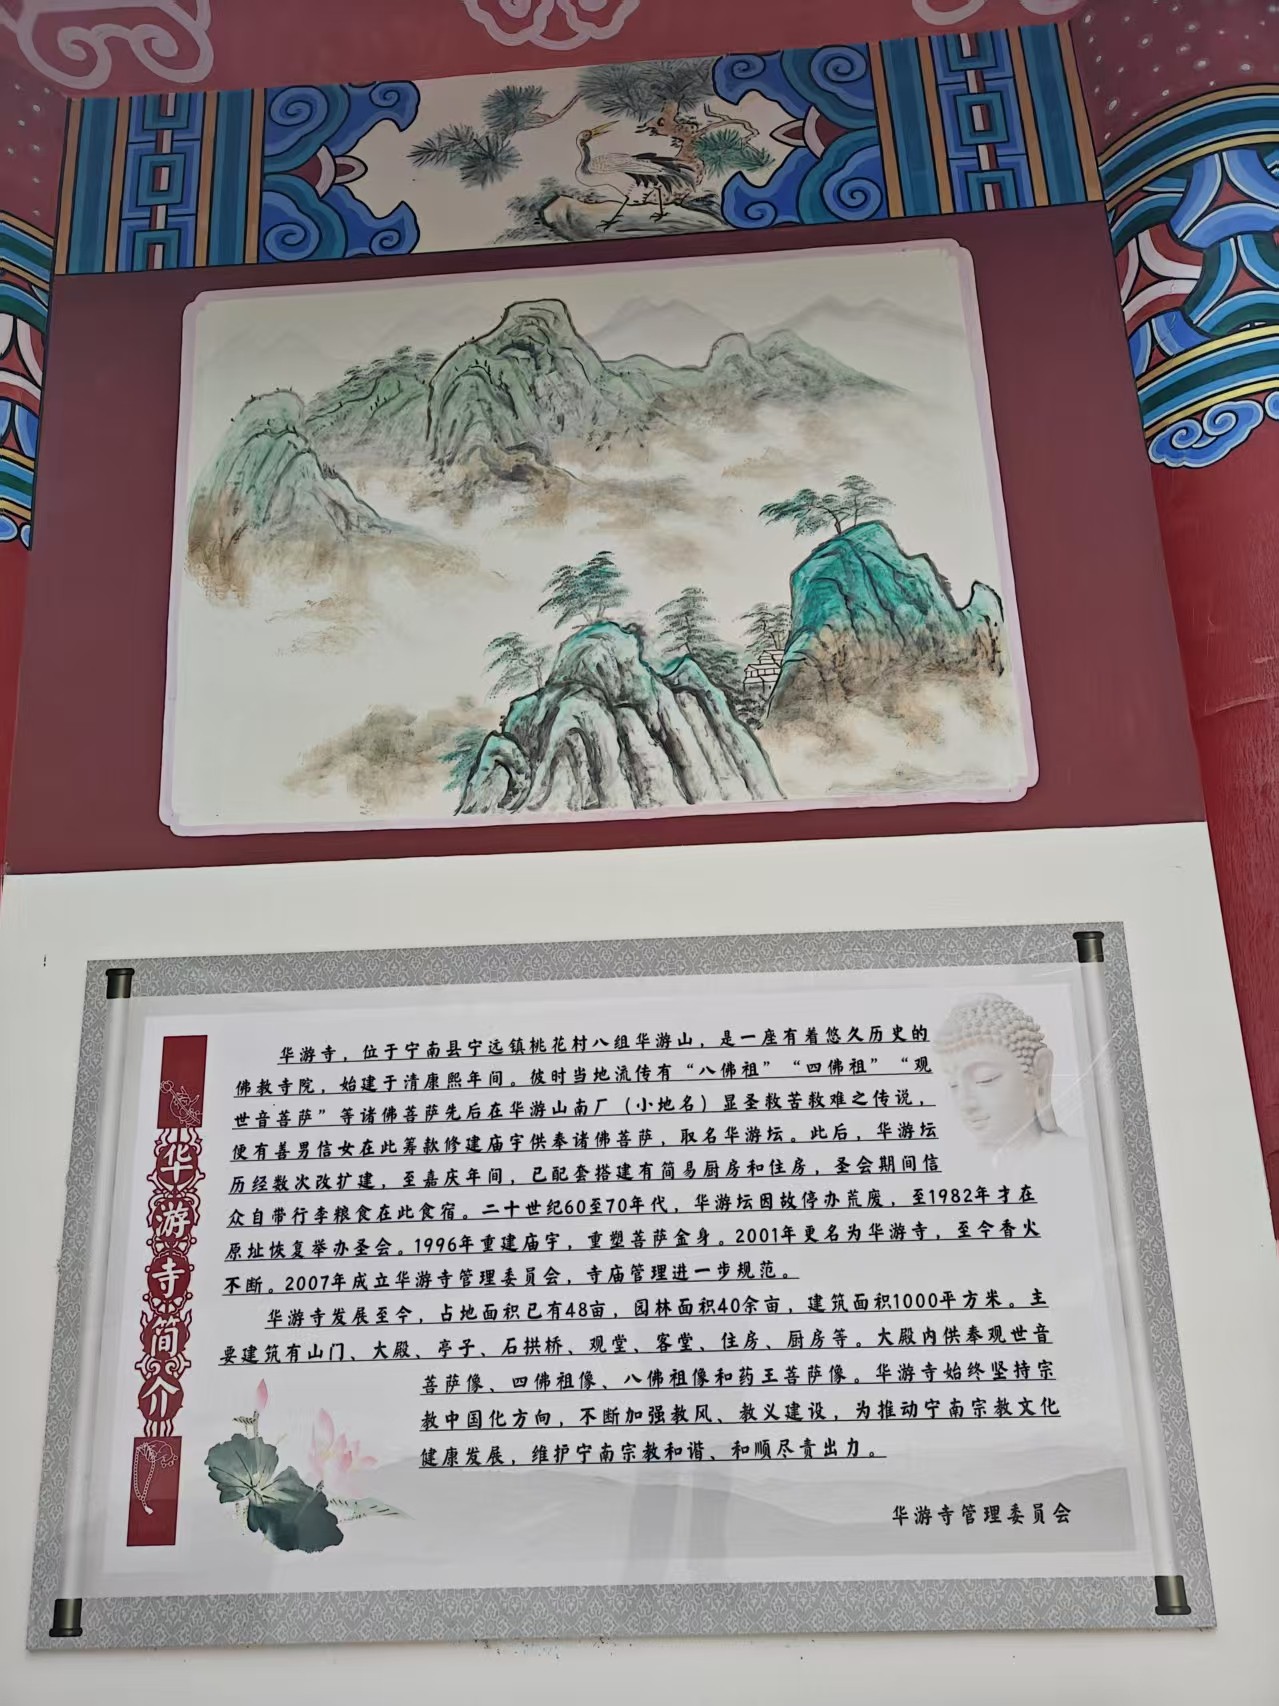 华游寺简介
华游寺，位于宁南县宁远镇桃花村八组华游山，是一座有着悠久历史的
佛教寺院，始建于清康熙年间。彼时当地流传有“八佛祖”“四佛祖”“观
世音菩萨”等诸佛菩萨先后在华游山南厂（小地名）显圣救苦救难之传说，
便有善男信女在此筹款修建庙宇供奉诸佛菩萨，取名华游坛。此后，华游坛
历经数次改扩建，至嘉庆年间，已配套搭建有简易厨房和住房，圣会期间信
众自带行李粮食在此食宿。二十世纪60至70年代，华游坛因故停办荒废，至1982年才在
原址恢复举办圣会。1996年重建庙宇，重塑菩萨金身。2001年更名为华游寺，至今香火
不断。2007年成立华游寺管理委员会，寺庙管理进一步规范。
华游寺发展至今，占地面积已有48亩，园林面积40余亩，建筑面积1000平方米。主
要建筑有山门、大殿、亭子、石拱桥、观堂、客堂、住房、厨房等。大殿内供奉观世音
菩萨像、四佛祖像、八佛祖像和药王菩萨像。华游寺始终坚持宗
教中国化方向，不断加强教风、教义建设，为推动宁南宗教文化
健康发展，维护宁南宗教和谐、和顺尽责出力。
华游寺管理委员会